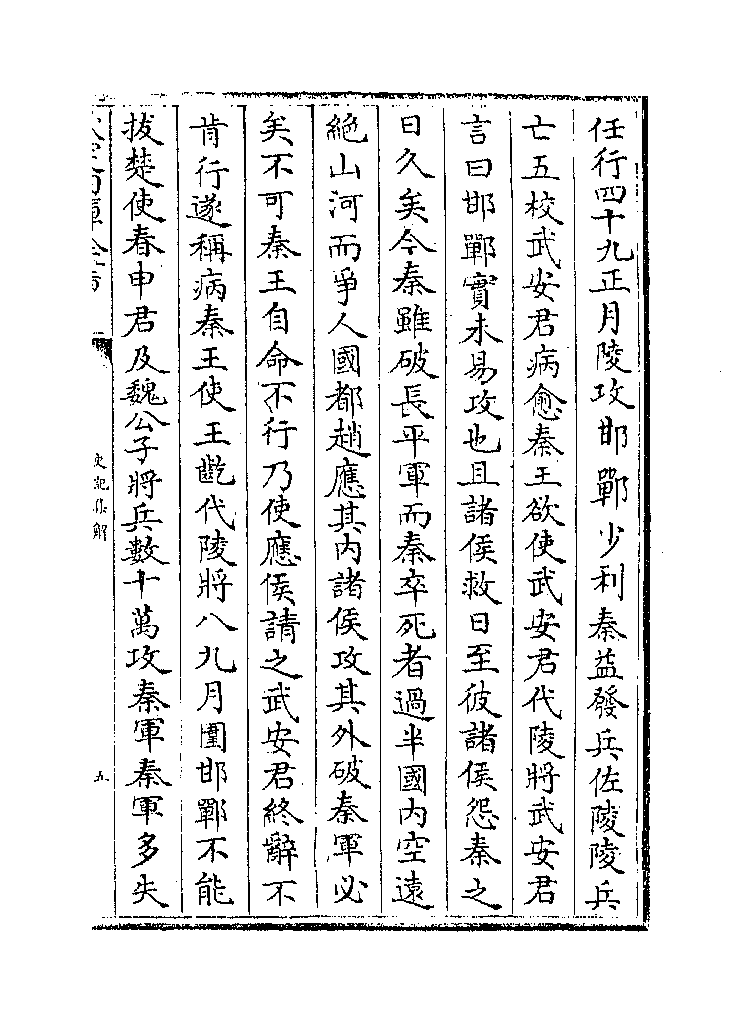 任行四十九正月陵攻邯鄲少利秦益發兵佐陵陵兵
亡五校武安君病愈秦王欲使武安君代陵將武安君
言曰邯鄲實未易攻也且諸侯救日至彼諸侯怨秦之
日久矣今秦雖破長平軍而秦卒死者過半國內空遠
絶山河而爭人國都趙應其內諸侯攻其外破秦軍必
矣不可秦王自命不行乃使應侯請之武安君終辭不
肯行遂稱病秦王使王齕代陵將八九月圍邯鄲不能
拔楚使春申君及魏公子將兵數十萬攻秦軍秦軍多失
史記集解
五